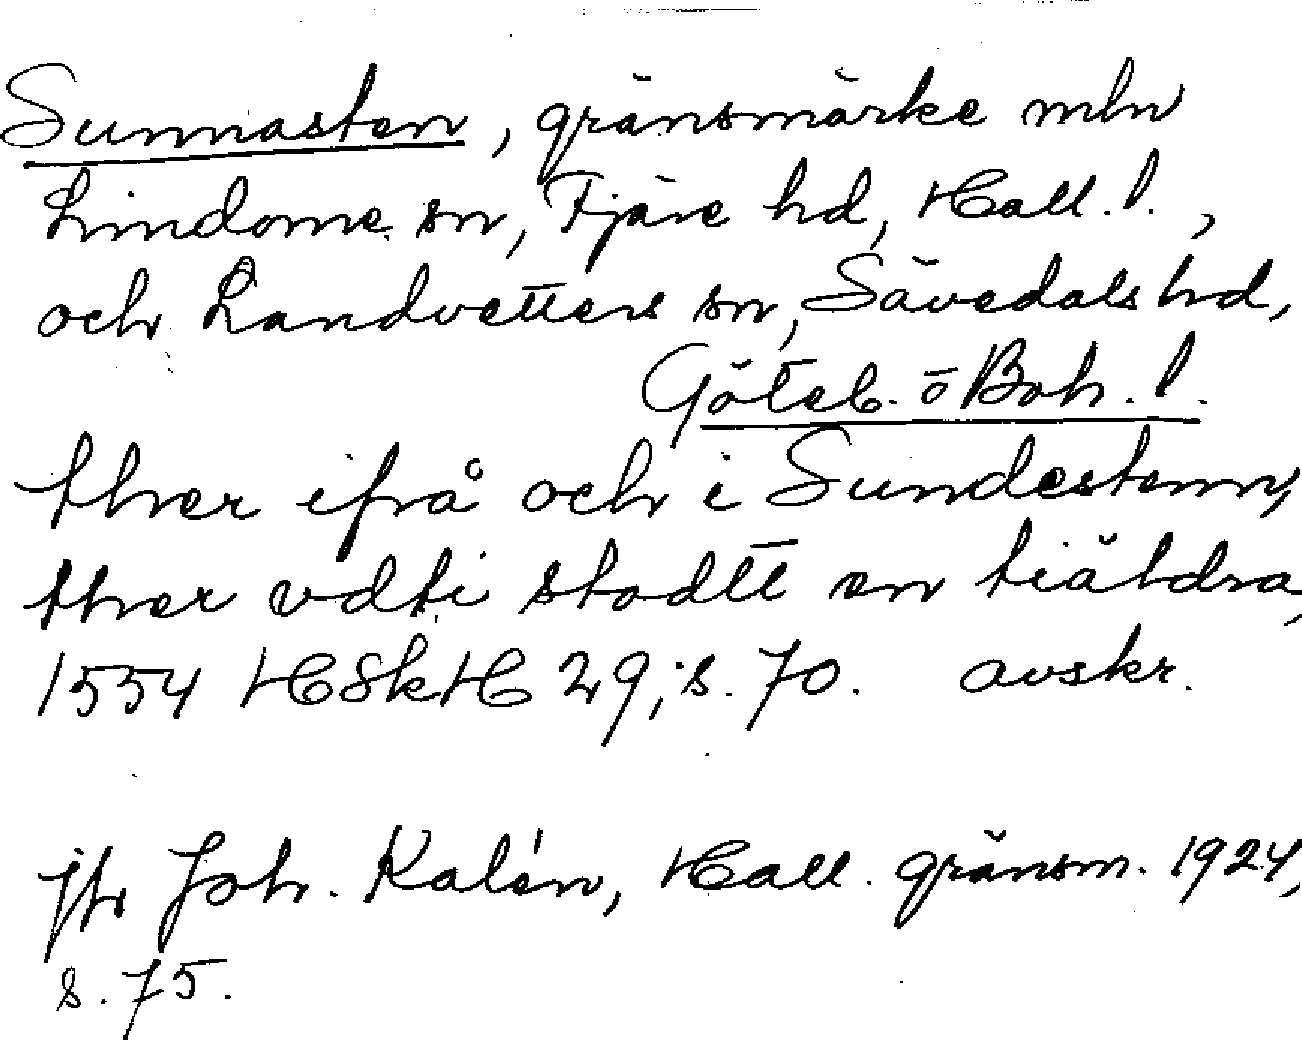 Sunnasten, gränsmärke mln
Lindome sn, Fjäre hd, Hall. l.,
och Landvetters sn, Sävedals hd,
Göteb. o Boh. l.
ther ifrå och i Sundestenn,
ther vdti stodtt en tiäldra,
1554 HSkH 29, s. 70. avskr.
jfr Joh. Kalén, Hall. gränsm. 1924,
s. 75.